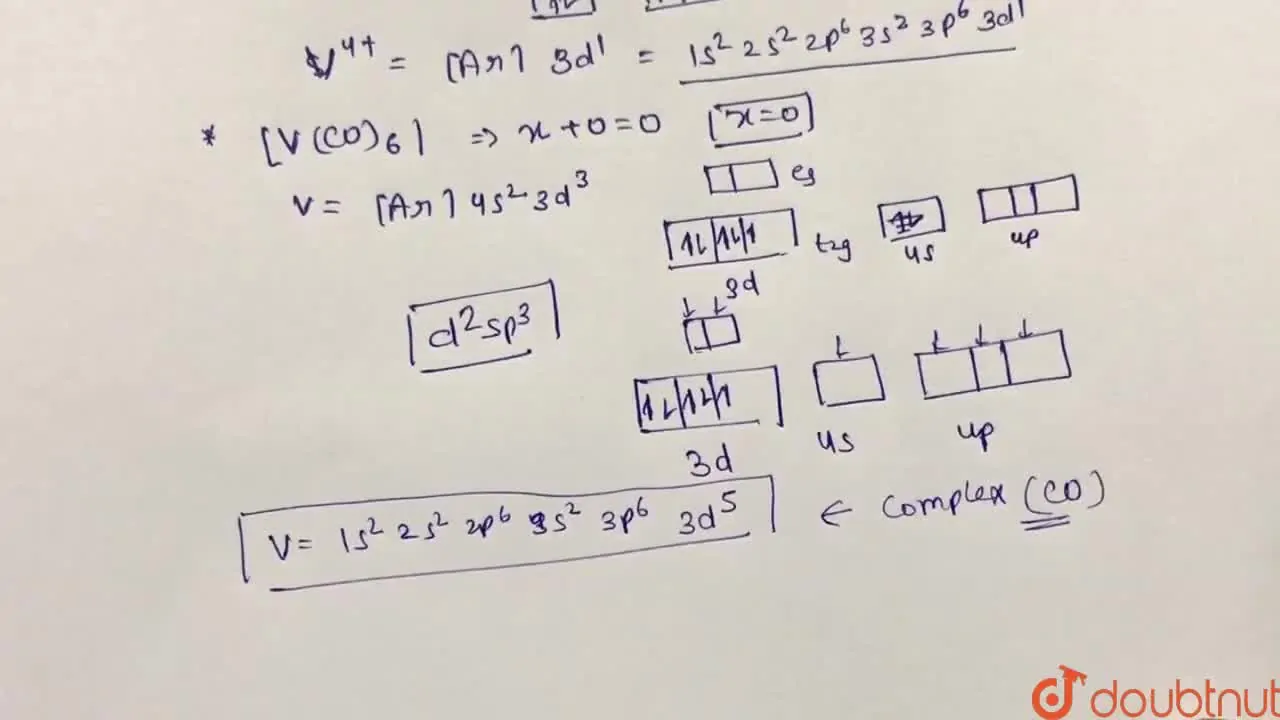 V⁴⁺ = [Ar] 3d¹ = 1s² 2s² 2p⁶ 3s² 3p⁶ 3d¹
* [V(CO)₆] ⇒ x+0=0 [x=0]
eg
V = [Ar] 4s² 3d³
1L 1L 1 t₂g 4s 4p
3d
[d²sp³]
1L 1L 1
3d 4s 4p
V = 1s² 2s² 2p⁶ 3s² 3p⁶ 3d⁵ ← Complex (CO)
doubtnut